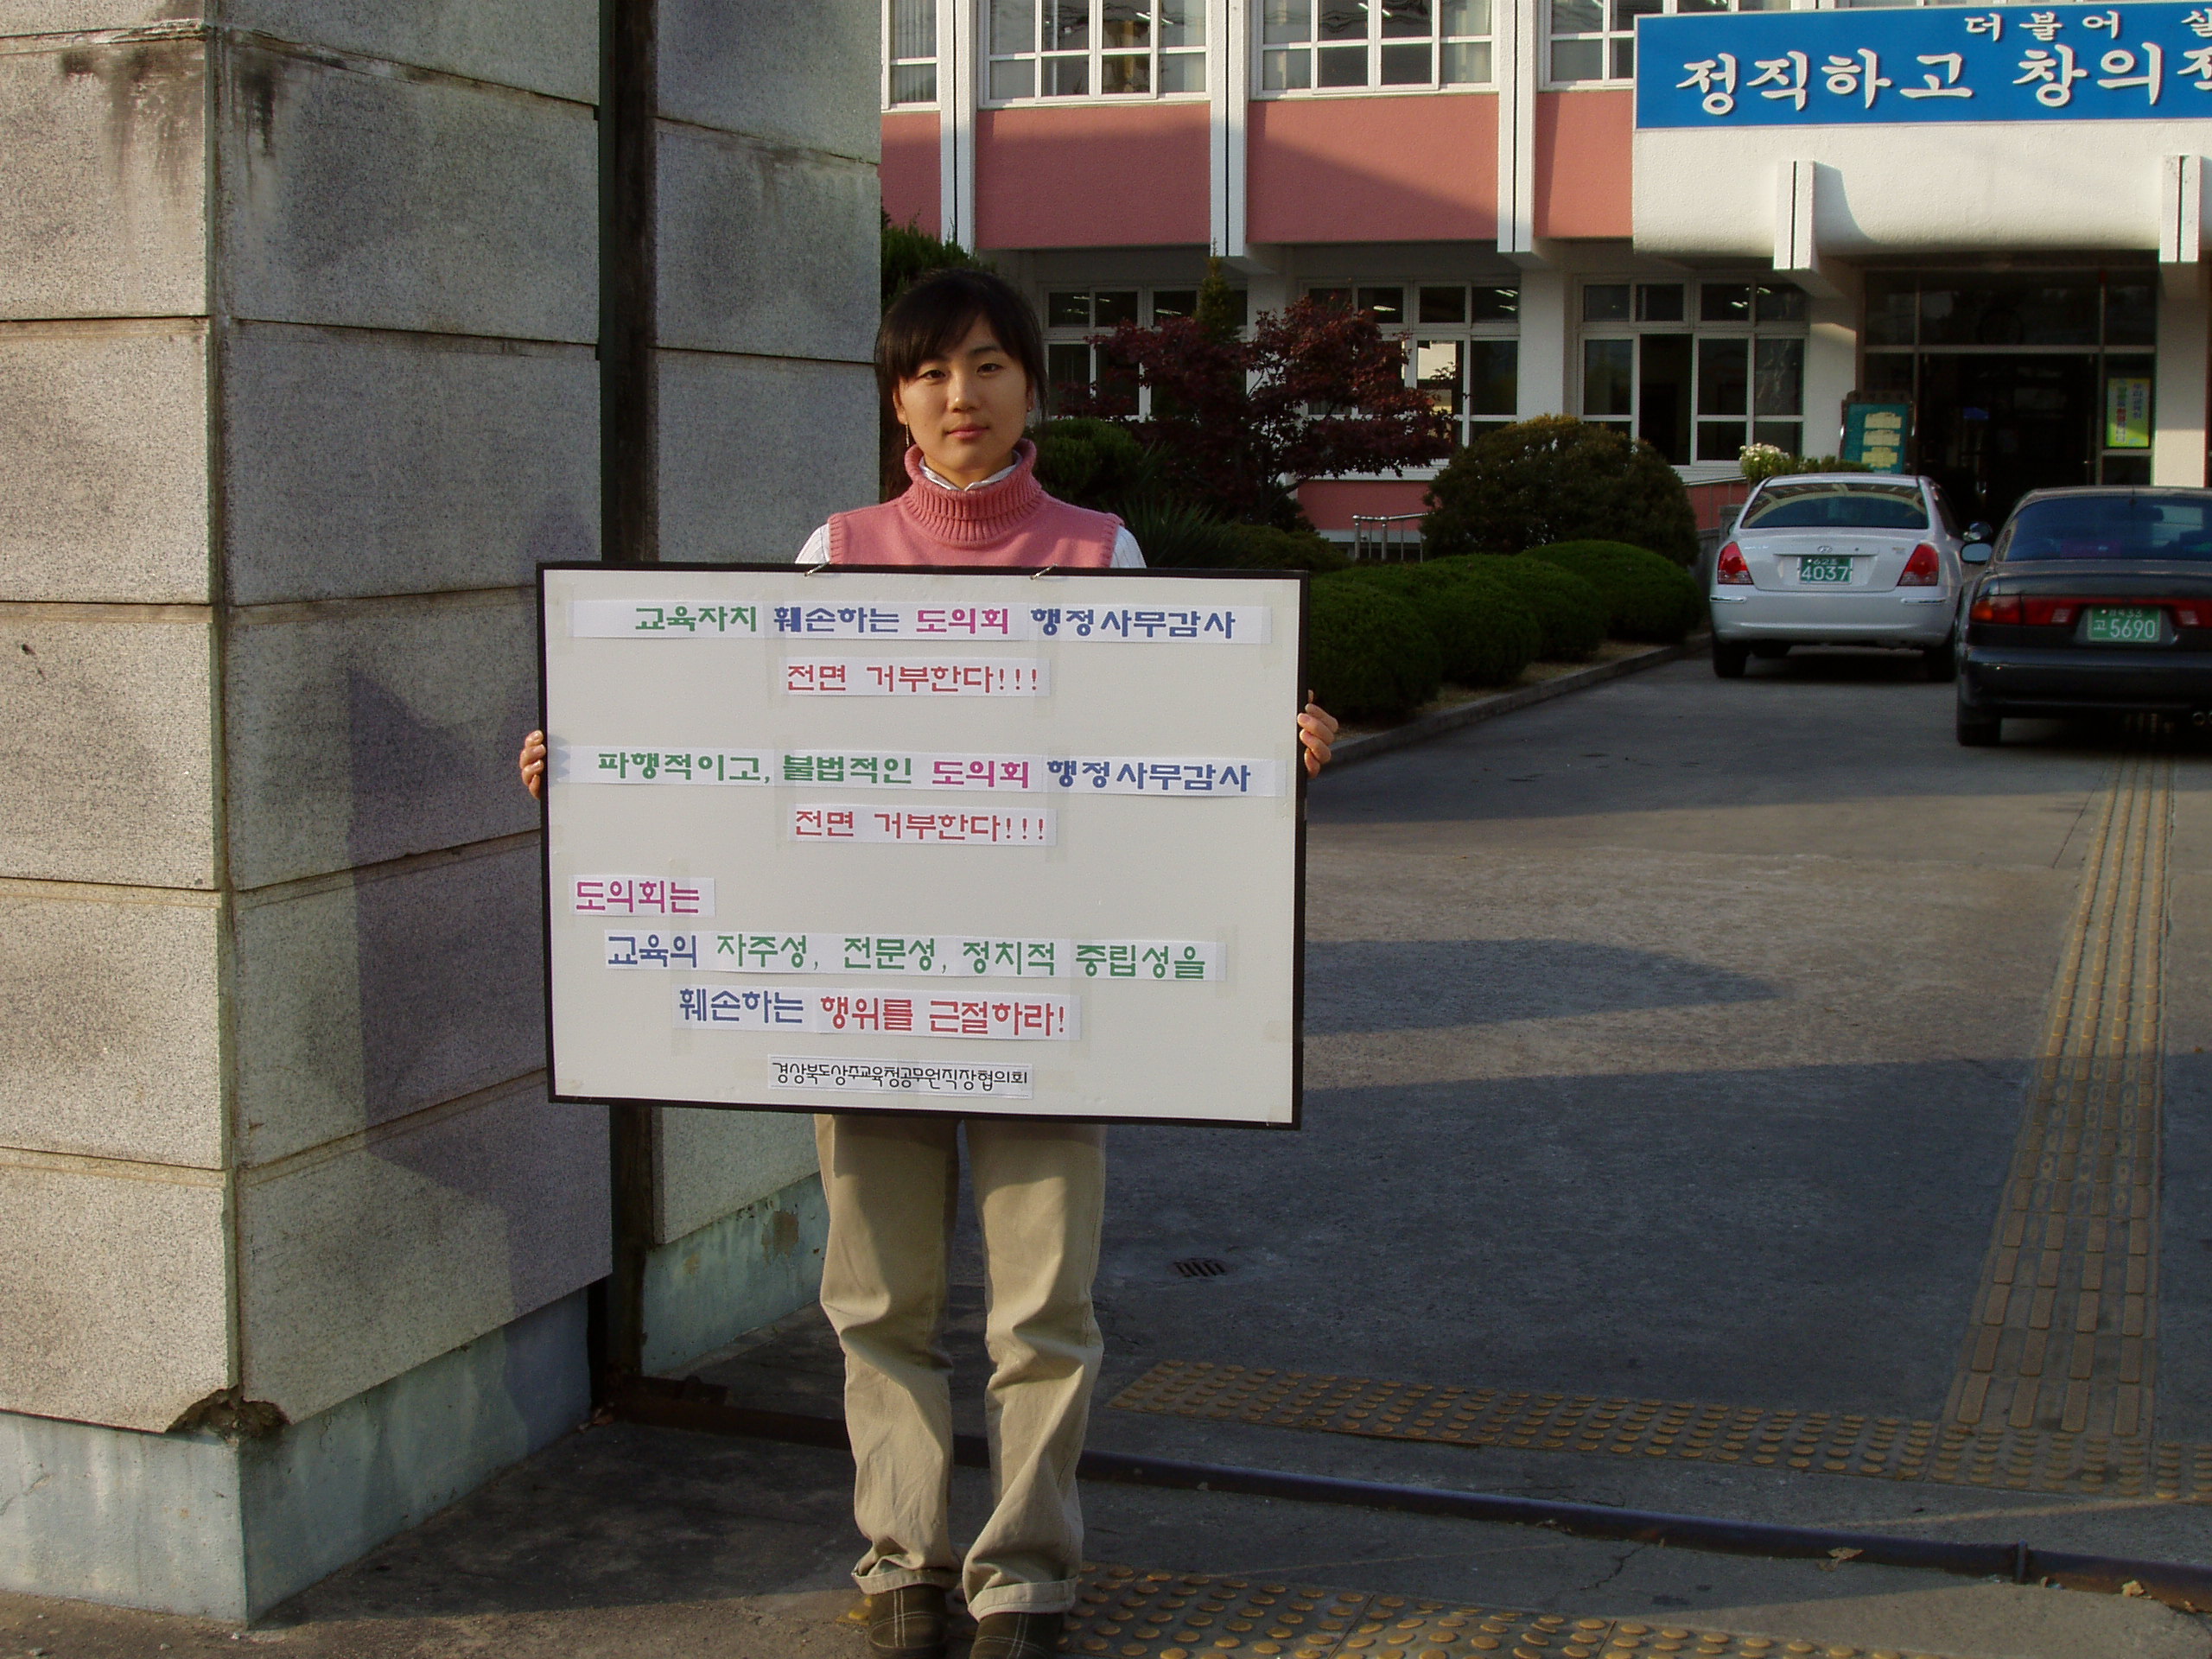 더불어
정직하고 창의적
교육자치 훼손하는 도의회 행정사무감사
전면 거부한다!!!
파행적이고, 불법적인 도의회 행정사무감사
전면 거부한다!!!
도의회는
교육의 자주성, 전문성, 정치적 중립성을
훼손하는 행위를 근절하라!
경상북도상주교육청공무원직장협의회
4037
고 5690